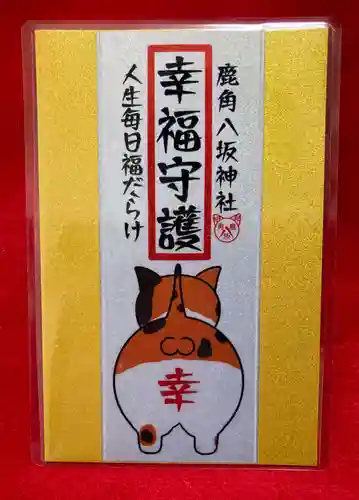 鹿角八坂神社
幸福守護
人生毎日福だらけ
幸